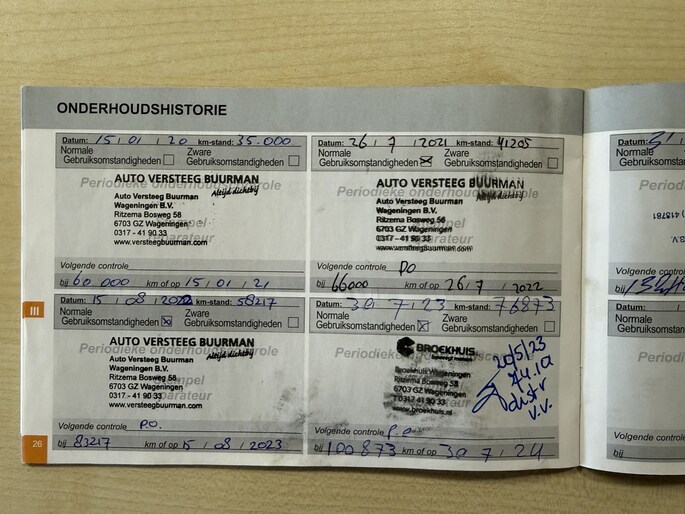 ONDERHOUDSHISTORIE
Datum: 15 / 01 / 20 km-stand: 35.000
Normale Gebruiksomstandigheden Zware Gebruiksomstandigheden
Periodieke onderhoudscontrole
AUTO VERSTEEG BUURMAN
Altijd dichtbij
Auto Versteeg Buurman
Wageningen B.V.
Ritzema Bosweg 58
6703 GZ Wageningen
0317 - 41 90 33
www.versteegbuurman.com
Volgende controle
bij 60.000 km of op 15 / 01 / 21
Datum: 26 / 7 / 2021 km-stand: 41205
Normale Gebruiksomstandigheden Zware Gebruiksomstandigheden
AUTO VERSTEEG BUURMAN
Altijd dichtbij
Auto Versteeg Buurman
Wageningen B.V.
Ritzema Bosweg 58
6703 GZ Wageningen
0317 - 41 90 33
www.versteegbuurman.com
Volgende controle PO
bij 66000 km of op 26 / 7 / 2022
III
Datum: 15 / 08 / 2022 km-stand: 58217
Normale Gebruiksomstandigheden Zware Gebruiksomstandigheden
AUTO VERSTEEG BUURMAN
Altijd dichtbij
Auto Versteeg Buurman
Wageningen B.V.
Ritzema Bosweg 58
6703 GZ Wageningen
0317 - 41 90 33
www.versteegbuurman.com
Volgende controle P.O.
bij 83217 km of op 15 / 08 / 2023
Datum: 30 7 / 23 km-stand: 76873
Normale Gebruiksomstandigheden Zware Gebruiksomstandigheden
BROEKHUIS
Broekhuis Wageningen
Ritzema Bosweg 58
6703 GZ Wageningen
T 0317 41 90 33
www.broekhuis.nl
20/5/23
distr
v.v.
Volgende controle P.O
bij 100873 km of op 30 / 7 / 24
26
Datum:
Normale
Gebruiksomstandigheden
B.V.
Volgende controle
bij
Datum:
Normale
Gebruiksomstandigheden
Volgende controle
bij